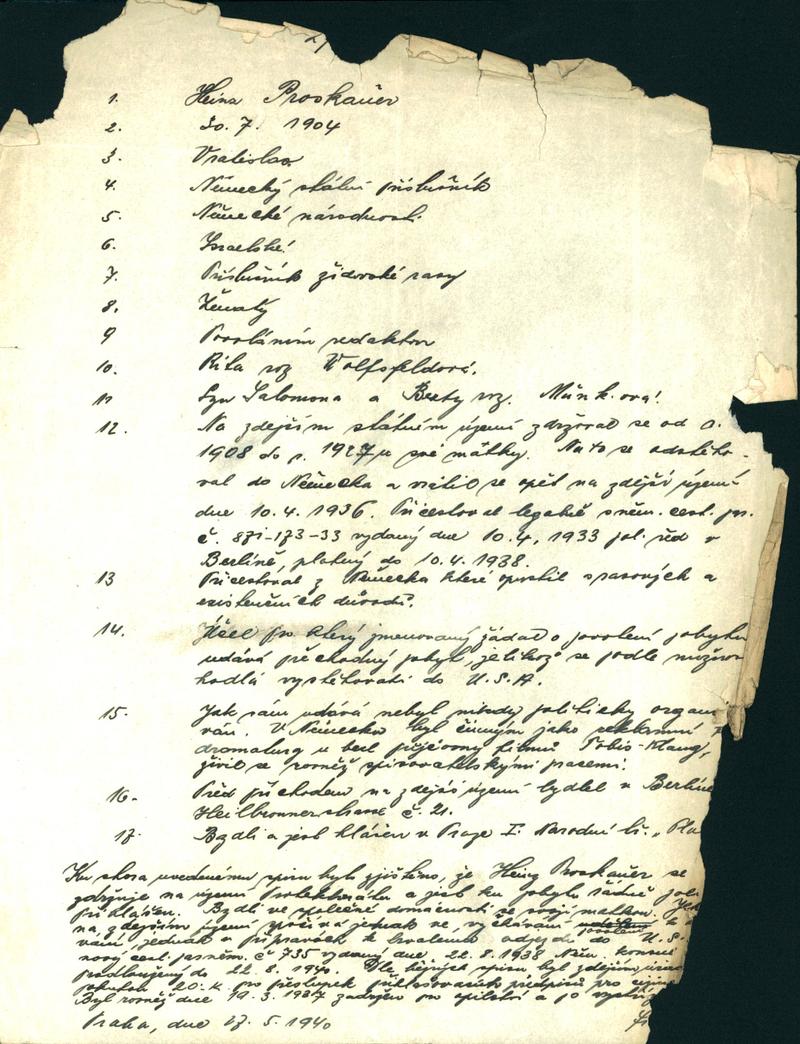 1. Heinz Proskauer
2. 30. 7. 1904
3. Vratislav
4. Německý státní příslušník
5. Německé národnosti
6. Israelské!
7. Příslušník židovské rasy
8. Ženatý
9 Povoláním redaktor
10. Rita roz Wolfsfeldová.
11 Syn Salomona a Berty roz. Münk.ova!
12. Na zdejším státním území zdržoval se od r.
1908 do r. 1927 u své mátky. Nato se odstěho-
val do Německa a vrátil se opět na zdejší území
dne 10.4.1936. Přicestoval legálně s něm. cest. pr.
č. 871-173-33 vydaný dne 10.4.1933 pol. řed v
Berlíně, platný do 10.4.1938.
13 Přicestoval z Německa které opustil s rasových a
existenčních důvodů.
14. Účel pro který jmenovaný žádal o povolení pobytu
udává přechodný pobyt, jelikož se podle
hodlá vystěhovati do U.S.A.
15. Jak sám udává nebyl nikdy politicky organi
ván. V Německu byl činným jako reklamní
dramaturg u berl půjčovny filmů Tobis-Klang,
živil se rovněž spisovatelskými pracemi.
16. Před příchodem na zdejší území bydlel v Berlíně
Heilbronnerstrasse č. 21.
17. Bydlí a jest hlášen v Praze I. Narodní tř. „Pla
Ku shora uvedenému spisu bylo zjištěno, že Heinz Proskauer se
zdržuje na území Protektorátu a jest ku pobytu řádně poli
přihlášen. Bydlí ve společné domácnosti se svojí matkou.
na zdejším území spočívá jednak ve vyčkávání povolení k
vání, jednak v přípravách k trvalému odjezdu do U.S.
nový cest. pas něm. č 735 vydaný dne 22.8.1938 Něm. konsul
prodloužený do 22.8.1940. Dle spisu byl zdejším
pokutou 20.K. pro přestupek přihlašovacích předpisů
Byl rovněž dne 19.3.1937 zadržen pro opilství a po
Praha, dne 27.5.1940